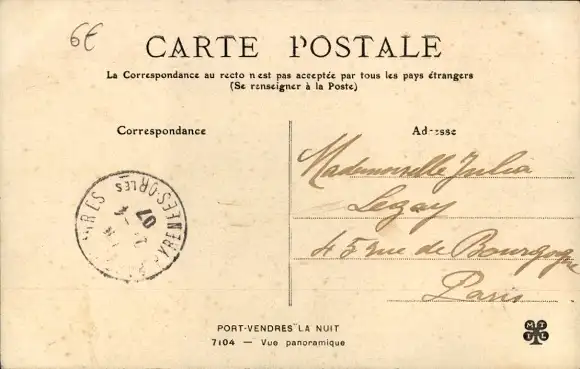 6€
CARTE POSTALE
La Correspondance au recto n'est pas acceptée par tous les pays étrangers
(Se renseigner à la Poste)
Correspondance
Adresse
Mademoiselle Julia
Legay
45 rue de Bourgogne
Paris
PYRENEES-ORLES
07
PORT-VENDRES LA NUIT
7104 — Vue panoramique
MTIL